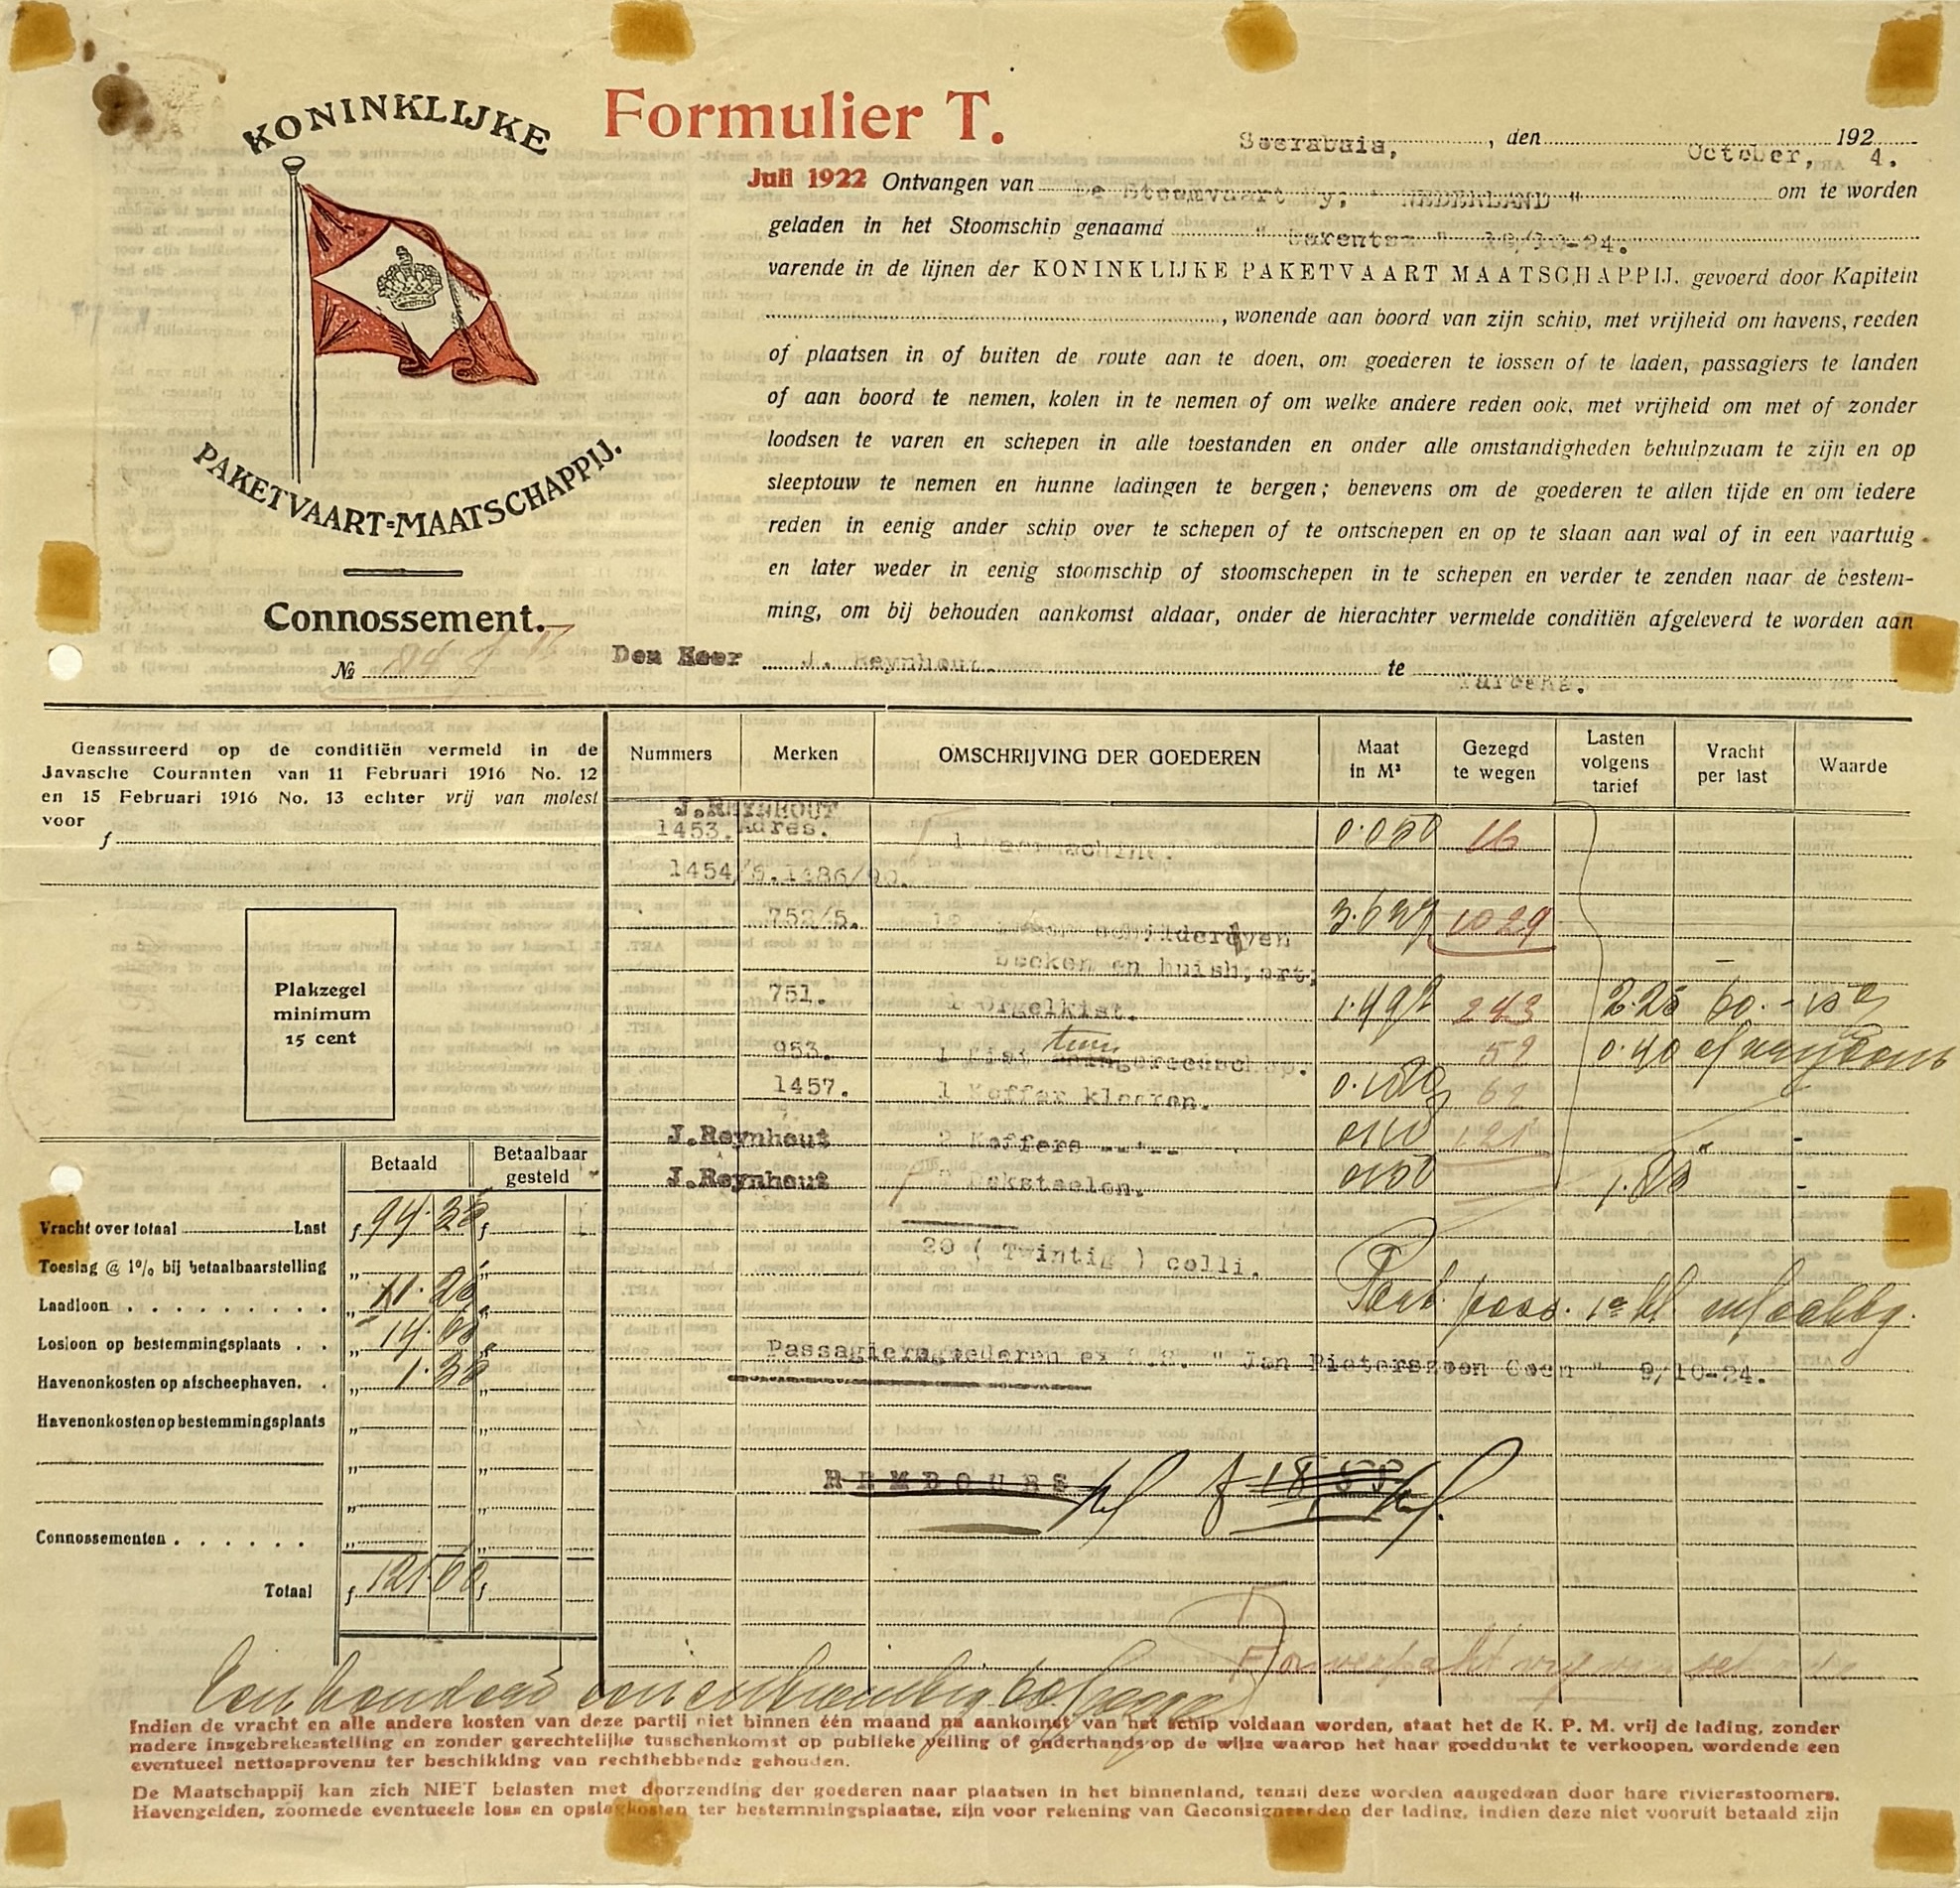 KONINKLIJKE
PAKETVAART-MAATSCHAPPIJ.
Connossement.
№
Formulier T.
Soerabaia, , den October, 192 4.
Juli 1922 Ontvangen van De Stoomvaart My; " NEDERLAND " om te worden
geladen in het Stoomschip genaamd " Barentsz " 18/10-24.
varende in de lijnen der KONINKLIJKE PAKETVAART MAATSCHAPPIJ, gevoerd door Kapitein
, wonende aan boord van zijn schip, met vrijheid om havens, reeden
of plaatsen in of buiten de route aan te doen, om goederen te lossen of te laden, passagiers te landen
of aan boord te nemen, kolen in te nemen of om welke andere reden ook, met vrijheid om met of zonder
loodsen te varen en schepen in alle toestanden en onder alle omstandigheden behulpzaam te zijn en op
sleeptouw te nemen en hunne ladingen te bergen; benevens om de goederen te allen tijde en om iedere
reden in eenig ander schip over te schepen of te ontschepen en op te slaan aan wal of in een vaartuig
en later weder in eenig stoomschip of stoomschepen in te schepen en verder te zenden naar de bestem-
ming, om bij behouden aankomst aldaar, onder de hierachter vermelde conditiën afgeleverd te worden aan
Den Heer J. Reynhout te
Geassureerd op de conditiën vermeld in de
Javasche Couranten van 11 Februari 1916 No. 12
en 15 Februari 1916 No. 13 echter vrij van molest
voor
f
Plakzegel
minimum
15 cent
Nummers Merken OMSCHRIJVING DER GOEDEREN Maat in M³ Gezegd te wegen Lasten volgens tarief Vracht per last Waarde
J.REYNHOUT
1453. Adres. 1 0.050 16
1454/5.1486/90.
752/5. 12 schilderyen 3.637 1029
boeken en huish;art;
751. 1 Orgelkist. 1.492 243 2.25 60.-
tuin
953. 1 Kist gereedschap. 52 0.40
1457. 1 Koffer kleeren. 62
J.Reynhout 2 Koffers --"-- 121
J.Reynhout 2 Dekstoelen. 1.80
20 ( Twintig ) colli.
Passagiersgoederen ex S.S. " Jan Pieterszoon Coen " 9/10-24.
REMBOURS f
Betaald Betaalbaar gesteld
Vracht over totaal Last f 94.30 f
Toeslag @ 1% bij betaalbaarstelling
Laadloon 11.20
Losloon op bestemmingsplaats 14.60
Havenonkosten op afscheephaven. 1.30
Havenonkosten op bestemmingsplaats
Connossementen
Totaal f 121.60 f
Een honderd een en twintig 60/
Indien de vracht en alle andere kosten van deze partij niet binnen één maand na aankomst van het schip voldaan worden, staat het de K. P. M. vrij de lading, zonder
nadere ingebrekestelling en zonder gerechtelijke tusschenkomst op publieke veiling of onderhands op de wijze waarop het haar goeddunkt te verkoopen, wordende een
eventueel netto=provenu ter beschikking van rechthebbende gehouden.
De Maatschappij kan zich NIET belasten met doorzending der goederen naar plaatsen in het binnenland, tenzij deze worden aangedaan door hare rivier=stoomers.
Havengelden, zoomede eventueele loss en opslagkosten ter bestemmingsplaatse, zijn voor rekening van Geconsigneerden der lading, indien deze niet vooruit betaald zijn